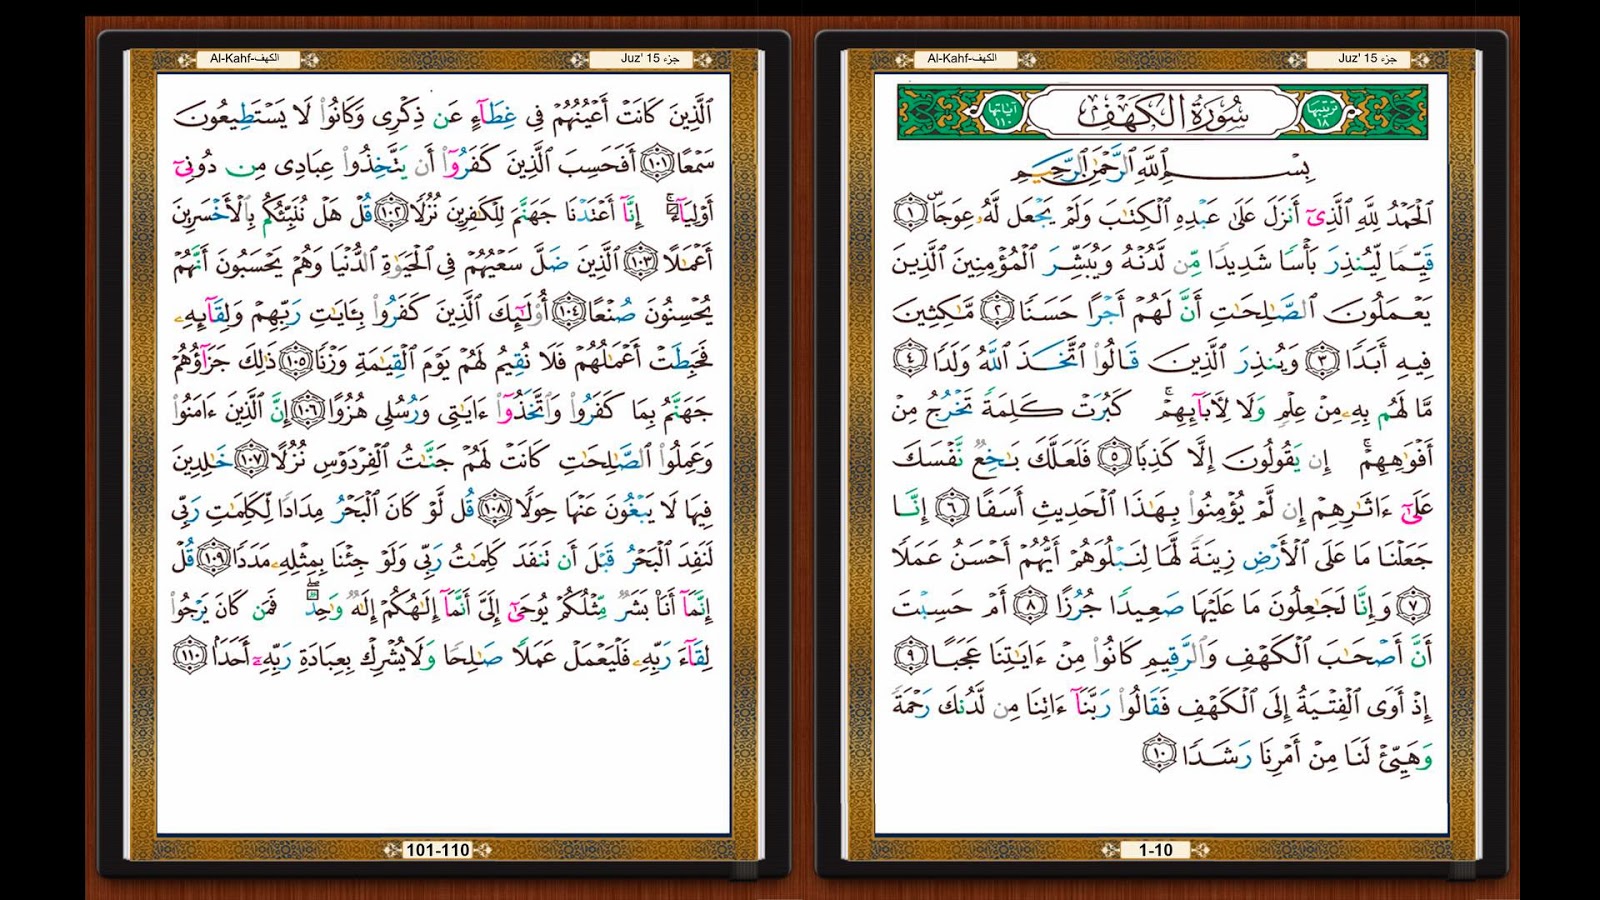 Al-Kahf-الكهف
Juz' 15 جزء
ترتيبها ١٨
سُورَةُ الْكَهْفِ
آياتها ١١٠
بِسْمِ اللَّهِ الرَّحْمَٰنِ الرَّحِيمِ
الْحَمْدُ لِلَّهِ الَّذِي أَنزَلَ عَلَىٰ عَبْدِهِ الْكِتَابَ وَلَمْ يَجْعَل لَّهُ عِوَجَا ۜ ١
قَيِّمًا لِّيُنذِرَ بَأْسًا شَدِيدًا مِّن لَّدُنْهُ وَيُبَشِّرَ الْمُؤْمِنِينَ الَّذِينَ
يَعْمَلُونَ الصَّالِحَاتِ أَنَّ لَهُمْ أَجْرًا حَسَنًا ٢ مَّاكِثِينَ
فِيهِ أَبَدًا ٣ وَيُنذِرَ الَّذِينَ قَالُوا اتَّخَذَ اللَّهُ وَلَدًا ٤
مَّا لَهُم بِهِ مِنْ عِلْمٍ وَلَا لِآبَائِهِمْ ۚ كَبُرَتْ كَلِمَةً تَخْرُجُ مِنْ
أَفْوَاهِهِمْ ۚ إِن يَقُولُونَ إِلَّا كَذِبًا ٥ فَلَعَلَّكَ بَاخِعٌ نَّفْسَكَ
عَلَىٰ ءَاثَارِهِمْ إِن لَّمْ يُؤْمِنُوا بِهَٰذَا الْحَدِيثِ أَسَفًا ٦ إِنَّا
جَعَلْنَا مَا عَلَى الْأَرْضِ زِينَةً لَّهَا لِنَبْلُوَهُمْ أَيُّهُمْ أَحْسَنُ عَمَلًا
٧ وَإِنَّا لَجَاعِلُونَ مَا عَلَيْهَا صَعِيدًا جُرُزًا ٨ أَمْ حَسِبْتَ
أَنَّ أَصْحَابَ الْكَهْفِ وَالرَّقِيمِ كَانُوا مِنْ ءَايَاتِنَا عَجَبًا ٩
إِذْ أَوَى الْفِتْيَةُ إِلَى الْكَهْفِ فَقَالُوا رَبَّنَا ءَاتِنَا مِن لَّدُنكَ رَحْمَةً
وَهَيِّئْ لَنَا مِنْ أَمْرِنَا رَشَدًا ١٠
1-10
Al-Kahf-الكهف
Juz' 15 جزء
الَّذِينَ كَانَتْ أَعْيُنُهُمْ فِي غِطَاءٍ عَن ذِكْرِي وَكَانُوا لَا يَسْتَطِيعُونَ
سَمْعًا ١٠١ أَفَحَسِبَ الَّذِينَ كَفَرُوا أَن يَتَّخِذُوا عِبَادِي مِن دُونِي
أَوْلِيَاءَ ۚ إِنَّا أَعْتَدْنَا جَهَنَّمَ لِلْكَافِرِينَ نُزُلًا ١٠٢ قُلْ هَلْ نُنَبِّئُكُم بِالْأَخْسَرِينَ
أَعْمَالًا ١٠٣ الَّذِينَ ضَلَّ سَعْيُهُمْ فِي الْحَيَوٰةِ الدُّنْيَا وَهُمْ يَحْسَبُونَ أَنَّهُمْ
يُحْسِنُونَ صُنْعًا ١٠٤ أُولَٰئِكَ الَّذِينَ كَفَرُوا بِـَٔايَاتِ رَبِّهِمْ وَلِقَائِهِ
فَحَبِطَتْ أَعْمَالُهُمْ فَلَا نُقِيمُ لَهُمْ يَوْمَ الْقِيَامَةِ وَزْنًا ١٠٥ ذَٰلِكَ جَزَاؤُهُمْ
جَهَنَّمُ بِمَا كَفَرُوا وَاتَّخَذُوا ءَايَاتِي وَرُسُلِي هُزُوًا ١٠٦ إِنَّ الَّذِينَ ءَامَنُوا
وَعَمِلُوا الصَّالِحَاتِ كَانَتْ لَهُمْ جَنَّاتُ الْفِرْدَوْسِ نُزُلًا ١٠٧ خَالِدِينَ
فِيهَا لَا يَبْغُونَ عَنْهَا حِوَلًا ١٠٨ قُل لَّوْ كَانَ الْبَحْرُ مِدَادًا لِّكَلِمَاتِ رَبِّي
لَنَفِدَ الْبَحْرُ قَبْلَ أَن تَنفَدَ كَلِمَاتُ رَبِّي وَلَوْ جِئْنَا بِمِثْلِهِ مَدَدًا ١٠٩ قُلْ
إِنَّمَا أَنَا بَشَرٌ مِّثْلُكُمْ يُوحَىٰ إِلَيَّ أَنَّمَا إِلَٰهُكُمْ إِلَٰهٌ وَاحِدٌ ۖ فَمَن كَانَ يَرْجُوا
لِقَاءَ رَبِّهِ فَلْيَعْمَلْ عَمَلًا صَالِحًا وَلَا يُشْرِكْ بِعِبَادَةِ رَبِّهِ أَحَدًا ١١٠
101-110